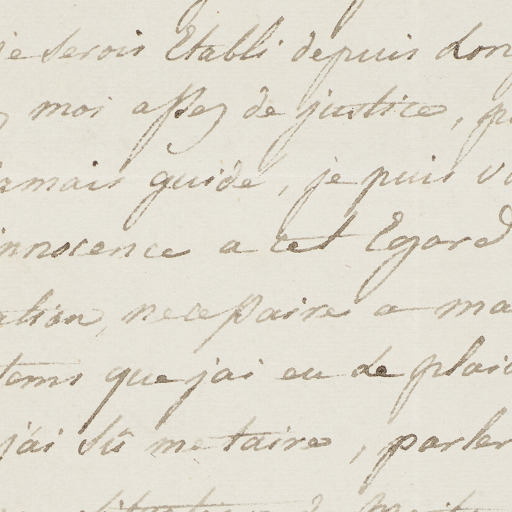 je serois Etabli depuis Lon
moi assez de justice, p
jamais guidé, je puis v
innocence a cet Egard
ation, necessaire a ma
tems que j'ai eu de plai
j'ai sû me taire, parler